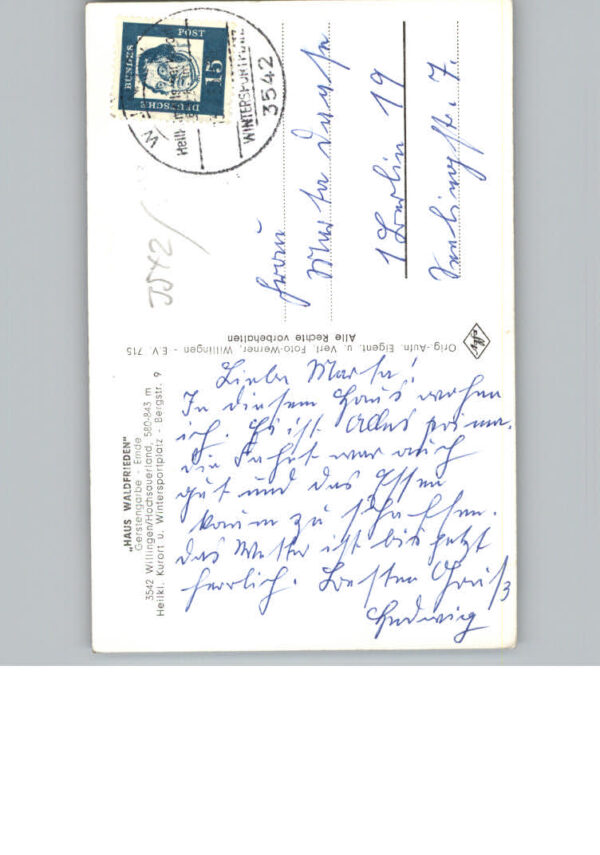 „HAUS WALDFRIEDEN"
Gerstengarbe - Emde
3542 Willingen/Hochsauerland, 580-843 m
Heilkl. Kurort u. Wintersportplatz - Bergstr. 9
Liebe Marta!
In diesem Haus wohne
ich. Es ist Alles prima.
die Fahrt war auch
gut und das Essen
kaum zu schaffen.
das Wetter ist bis jetzt
herrlich. Besten Gruß
Hedwig
Orig.-Aufn. Eigent. u. Verl. Foto-Werner, Willingen - E.V. 715
Alle Rechte vorbehalten
DEUTSCHE
BUNDES
POST
15
WINTERSPORTPLATZ
3542
3542
Frau
Marta
1 Berlin 19
Seelingstr. 7.